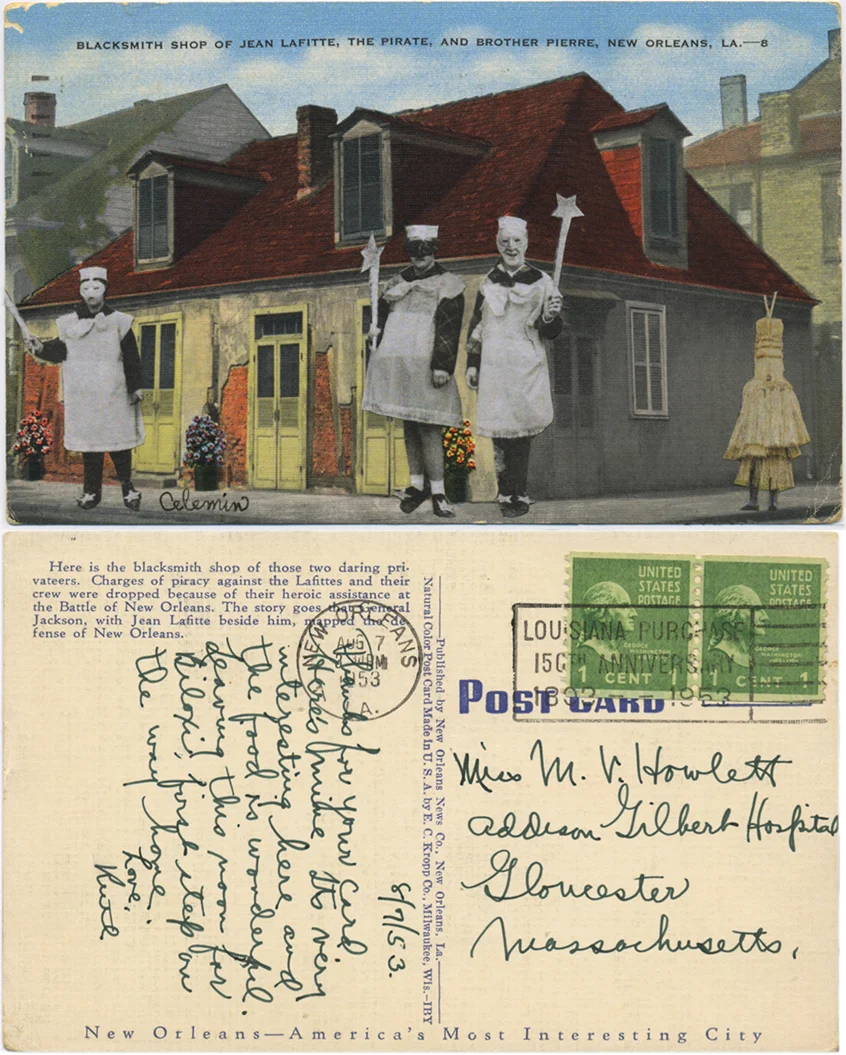 BLACKSMITH SHOP OF JEAN LAFITTE, THE PIRATE, AND BROTHER PIERRE, NEW ORLEANS, LA.—8
Celemin
Here is the blacksmith shop of those two daring pri-
vateers. Charges of piracy against the Lafittes and their
crew were dropped because of their heroic assistance at
the Battle of New Orleans. The story goes that General
Jackson, with Jean Lafitte beside him, mapped the de-
fense of New Orleans.
NEW ORLEANS
AUG 7
PM
1953
LA.
8/7/53.
Thanks for your card
Here's mine. Its very
interesting here and
the food is wonderful.
Leaving this noon for
Biloxi, first stop on
the way home.
Love,
Published by New Orleans News Co., New Orleans, La.
Natural Color Post Card Made in U. S. A. by E. C. Kropp Co., Milwaukee, Wis.—IBY
UNITED
STATES
POSTAGE
GEORGE
WASHINGTON
1 CENT 1
UNITED
STATES
POSTAGE
GEORGE
WASHINGTON
1 CENT 1
LOUISIANA PURCHASE
150TH ANNIVERSARY
1803 — — 1953
POST CARD
Miss M. V. Howlett
Addison Gilbert Hospital
Gloucester
Massachusetts,
New Orleans—America's Most Interesting City